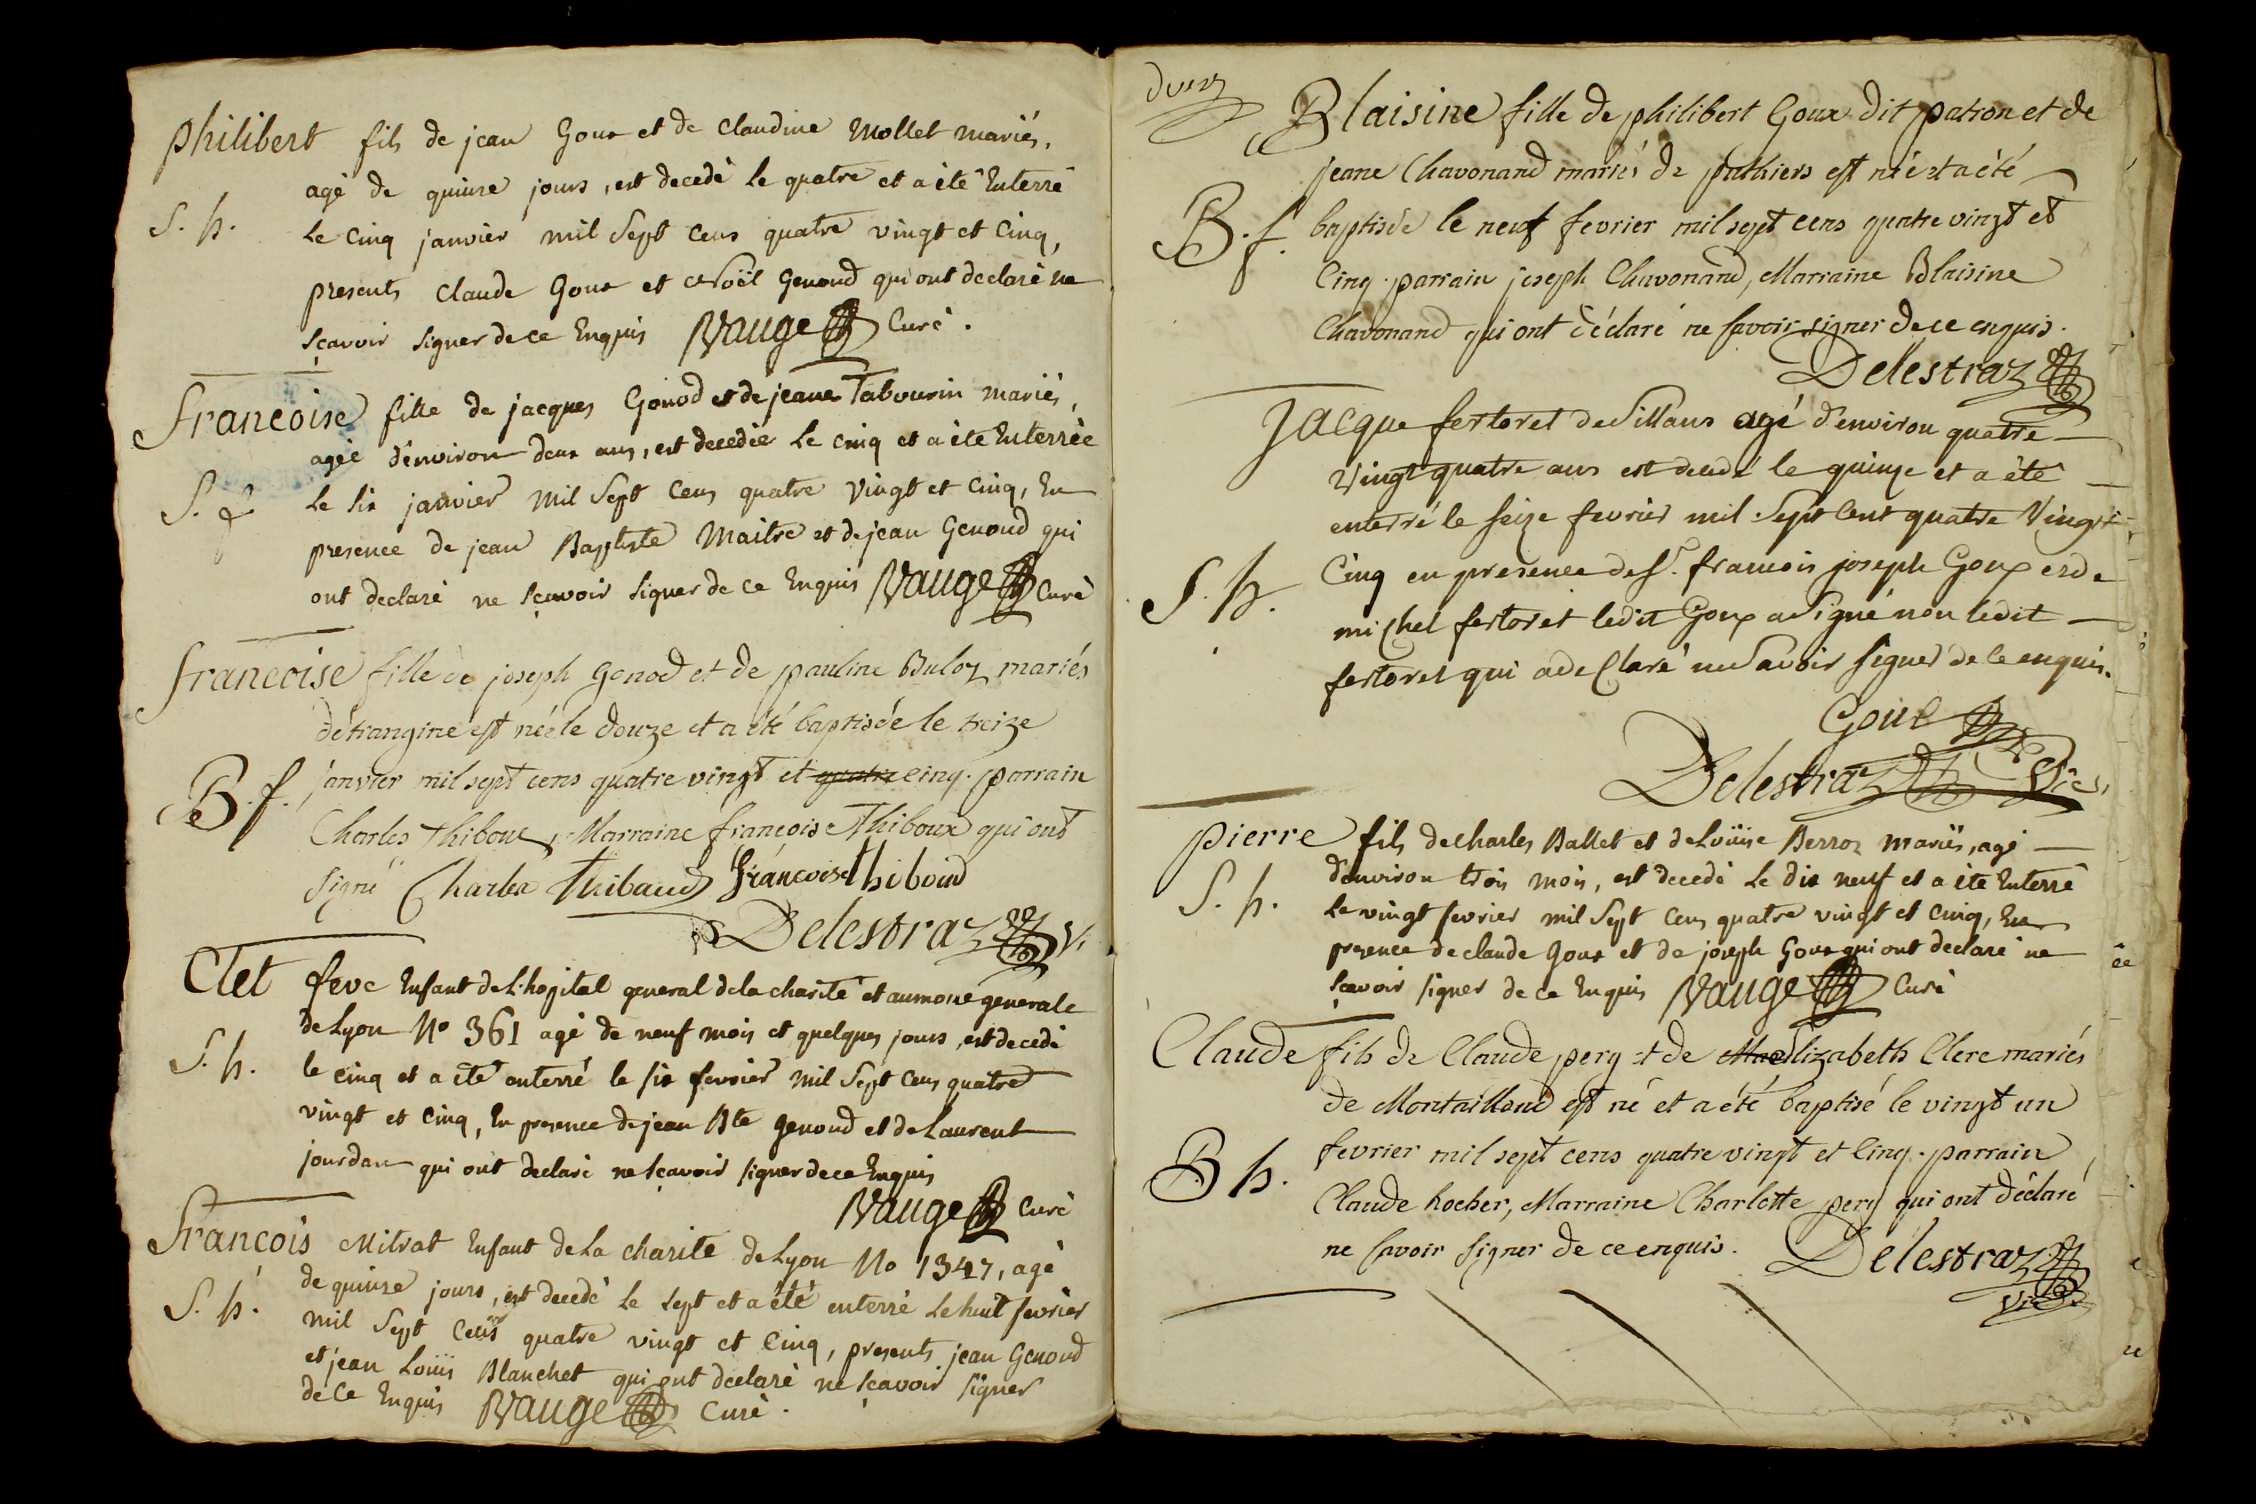 philibert fils de jean Goux et de claudine Mollet mariés,
agé de quinze jours, est decedé le quatre et a été Enterré
S. h.
Le cinq janvier mil Sept cens quatre vingt et cinq,
presents claude Goux et Noël Genoud qui ont declaré ne
sçavoir signer de ce Enquis Vauge Curé.
francoise fille de jacques Gonod et de jeane Tabourin mariés,
agée d'environ deux ans, est decedée Le cinq et a été Enterrée
S. f
Le six janvier mil Sept Cens quatre Vingt et cinq, En
presence de jean Baptiste Maitre et de jean Genoud qui
ont declaré ne sçavoir signer de ce Enquis Vauge Curé
francoise fille de joseph Genod et de pauline Buloz mariés
détrangine est née le douze et a été baptisée le treize
B. f.
janvier mil sept cens quatre vingt et quatre cinq. parrain
Charles Thiboux, Marraine françoise Thiboux qui ont
signé Charles Thibaud francoise thiboud
Delestraz V.
Clet feve Enfant de L'hopital general de la charité et aumone generale
de Lyon No 361 agé de neuf mois et quelques jours, est decedé
S. h.
le cinq et a été enterré le six fevrier mil Sept Cens quatre
vingt et cinq, En presence de jean Bte genoud et de Laurent
jourdan qui ont declaré ne sçavoir signer de ce Enquis
Vauge Curé
François Mitrat Enfant de La charité de Lyon No 1347, agé
de quinze jours, est decedé Le sept et a été enterré Le huit fevrier
S. h.
mil Sept Cens quatre vingt et Cinq, presents jean Genoud
et jean Loüis Blanchet qui ont declaré ne sçavoir signer
de Ce Enquis Vauge Curé.
Blaisine fille de philibert Goux dit patron et de
jeane Chavonand mariés de pathiers est né et a été
B. f.
baptisée le neuf fevrier mil sept cens quatre vingt et
Cinq. parrain joseph Chavonand, Marraine Blaisine
Chavonand qui ont déclaré ne savoir signer de ce enquis.
Delestraz
Jacque fertoret de Sillans agé d'environ quatre
Vingt quatre ans est decedé le quinze et a été
enterré le seize fevrier mil Sept Cent quatre Vingt
S. h.
Cinq en presence de Sr. francois joseph Goux et de
michel fertoret ledit Goux a Signé non ledit
fertoret qui a declaré ne Savoir signer de ce enquis.
Goux
Delestraz Vic.
pierre fils de charles Ballet et de Loüise Berroz mariés, agé
d'environ trois mois, est decedé Le dix neuf et a été Enterré
S. h.
Le vingt fevrier mil Sept Cens quatre vingt et cinq, En
presence de claude Goux et de joseph Goux qui ont declaré ne
sçavoir signer de ce Enquis Vauge Curé
Claude fils de Claude pery et de Elizabeth Clerc mariés
de Montailloud est né et a été baptisé le vingt un
B h.
fevrier mil sept cens quatre vingt et Cinq. parrain
Claude hocher, Marraine Charlotte pery qui ont déclaré
ne savoir signer de ce enquis. Delestraz
Vic.